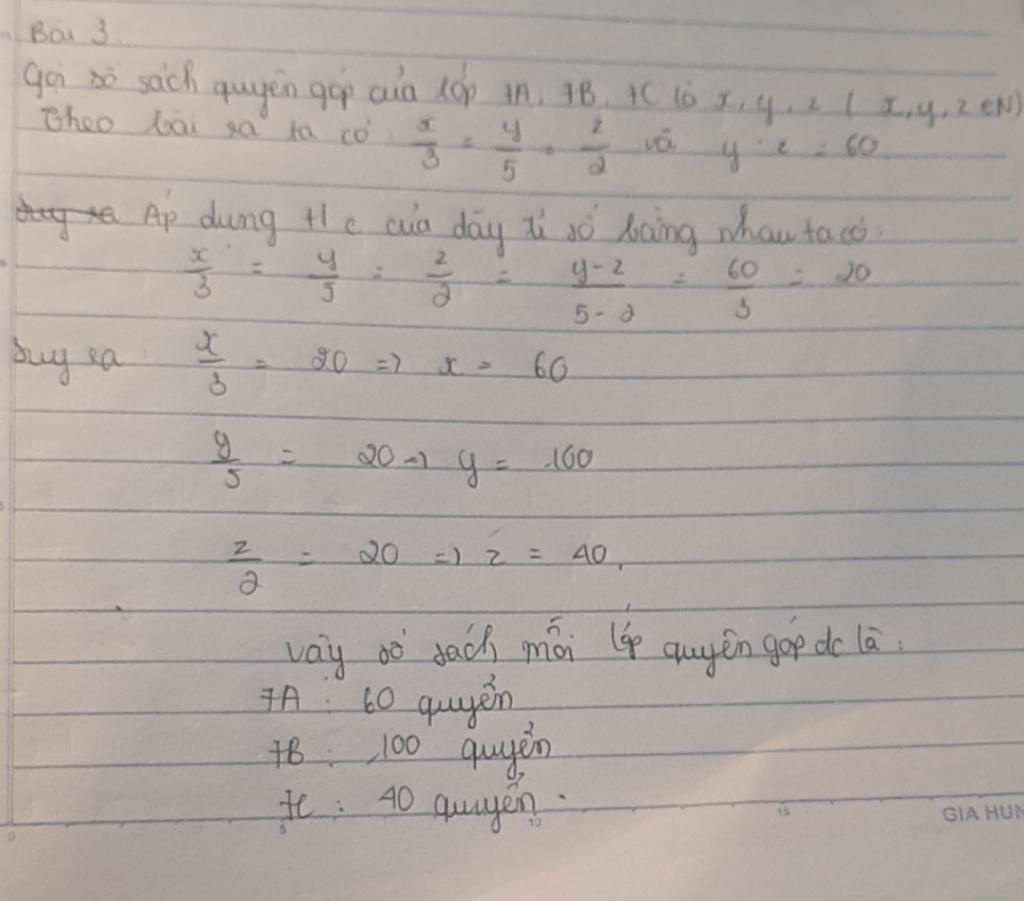 Bài 3
Gọi số sách quyên góp của lớp 7A, 7B, 7C là x, y, z ( x, y, z ∈ N)
Theo bài ra ta có x/3 = y/5 = z/2 và y - z = 60
Suy ra Áp dụng t/c của dãy tỉ số bằng nhau ta có:
x/3 = y/5 = z/2 = y-z/5-2 = 60/3 = 20
Suy ra: x/3 = 20 => x = 60
y/5 = 20 => y = 100
z/2 = 20 => z = 40.
Vậy số sách mỗi lớp quyên góp đc là:
7A: 60 quyển
7B: 100 quyển
7C: 40 quyển.
5 10 15
GIA HUN
0